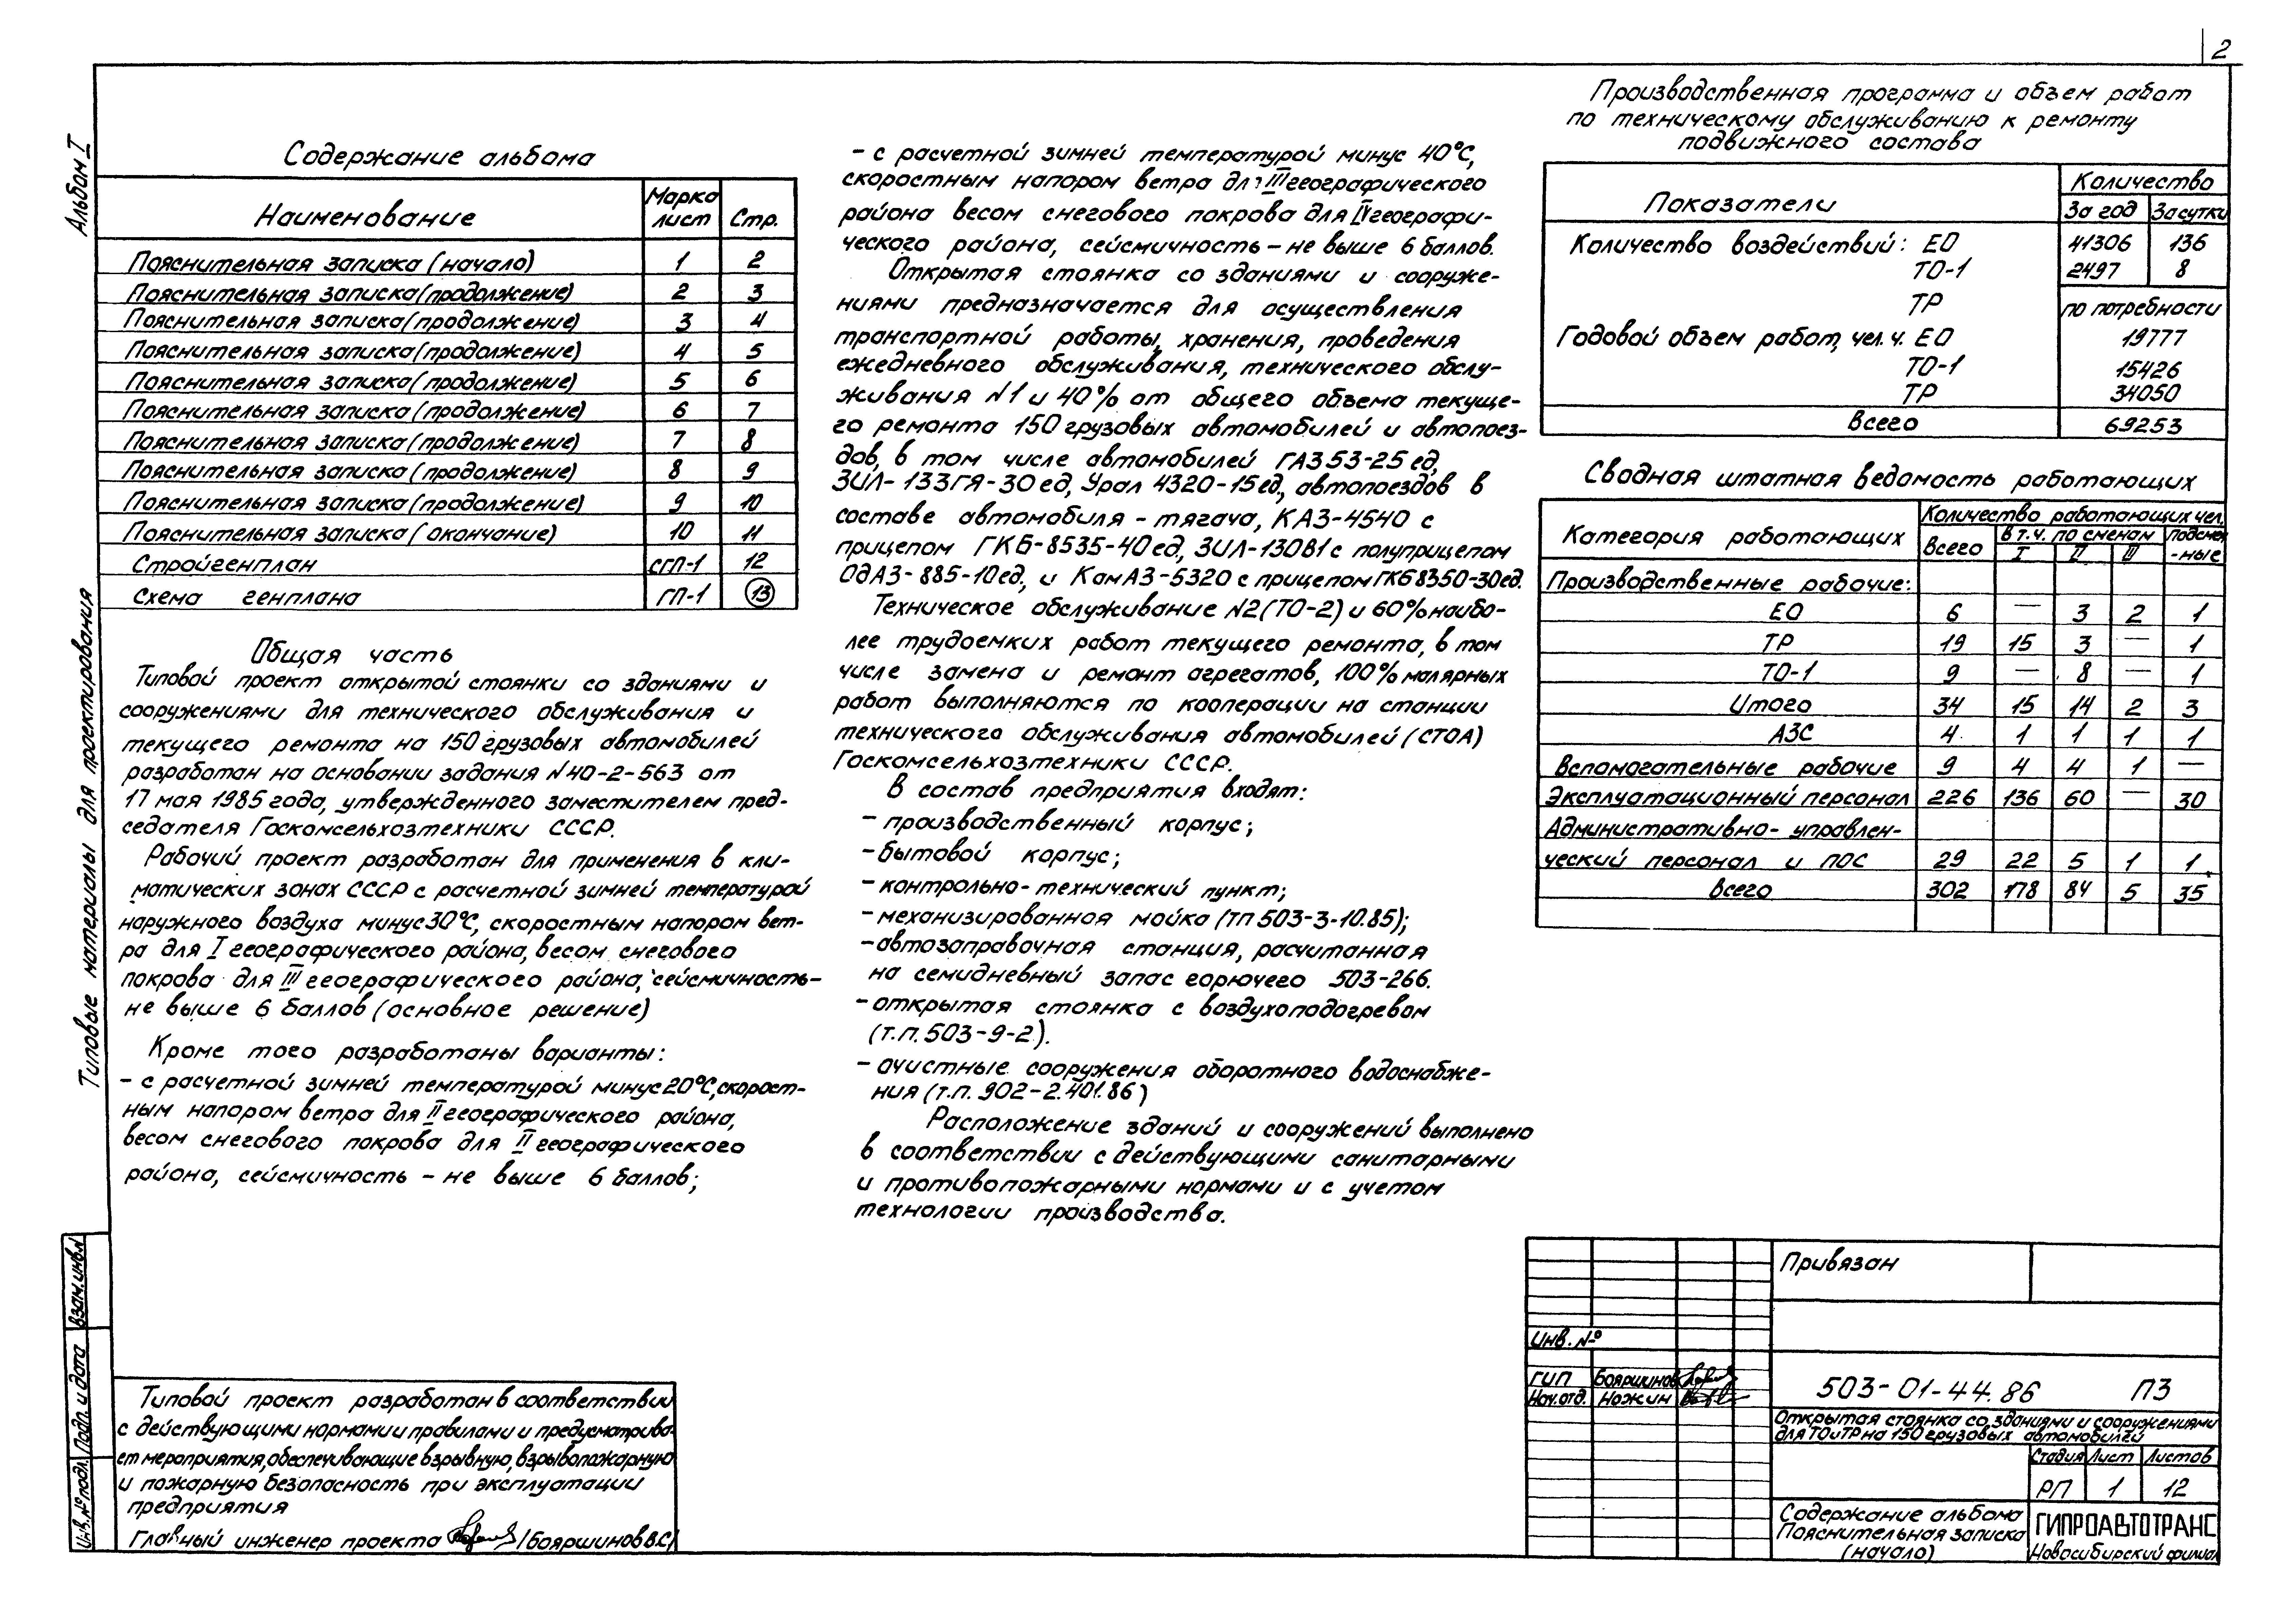 2
Альбом I
Типовые материалы для проектирования
Содержание альбома
Наименование Марка лист Стр.
Пояснительная записка (начало) 1 2
Пояснительная записка (продолжение) 2 3
Пояснительная записка (продолжение) 3 4
Пояснительная записка (продолжение) 4 5
Пояснительная записка (продолжение) 5 6
Пояснительная записка (продолжение) 6 7
Пояснительная записка (продолжение) 7 8
Пояснительная записка (продолжение) 8 9
Пояснительная записка (продолжение) 9 10
Пояснительная записка (окончание) 10 11
Стройгенплан СГП-1 12
Схема генплана ГП-1 13
Общая часть
Типовой проект открытой стоянки со зданиями и
сооружениями для технического обслуживания и
текущего ремонта на 150 грузовых автомобилей
разработан на основании задания N40-2-563 от
17 мая 1985 года, утвержденного заместителем пред-
седателя Госкомсельхозтехники СССР.
Рабочий проект разработан для применения в кли-
матических зонах СССР с расчетной зимней температурой
наружного воздуха минус 30°С, скоростным напором вет-
ра для I географического района, весом снегового
покрова для III географического района, сейсмичность-
не выше 6 баллов (основное решение)
Кроме того разработаны варианты:
- с расчетной зимней температурой минус 20°С, скорост-
ным напором ветра для II географического района,
весом снегового покрова для II географического
района, сейсмичность - не выше 6 баллов;
- с расчетной зимней температурой минус 40°С,
скоростным напором ветра для III географического
района весом снегового покрова для IV географи-
ческого района, сейсмичность - не выше 6 баллов.
Открытая стоянка со зданиями и сооруже-
ниями предназначается для осуществления
транспортной работы, хранения, проведения
ежедневного обслуживания, технического обслу-
живания N1 и 40% от общего объема текуще-
го ремонта 150 грузовых автомобилей и автопоез-
дов, в том числе автомобилей ГАЗ 53-25 ед,
ЗИЛ-133ГЯ-30 ед, Урал 4320-15 ед., автопоездов в
составе автомобиля - тягача, КАЗ-4540 с
прицепом ГКБ-8535-40 ед, ЗИЛ-130В1 с полуприцепом
ОдАЗ-885-10 ед, и КамАЗ-5320 с прицепом ГКБ 8350-30 ед.
Техническое обслуживание N2 (ТО-2) и 60% наибо-
лее трудоемких работ текущего ремонта, в том
числе замена и ремонт агрегатов, 100% малярных
работ выполняются по кооперации на станции
технического обслуживания автомобилей (СТОА)
Госкомсельхозтехники СССР.
В состав предприятия входят:
- производственный корпус;
- бытовой корпус;
- контрольно-технический пункт;
- механизированная мойка (ТП 503-3-10.85);
- автозаправочная станция, расчитанная
на семидневный запас горючего 503-266.
- открытая стоянка с воздухоподогревом
(т.п. 503-9-2).
- очистные сооружения оборотного водоснабже-
ния (т.п. 902-2.401.86)
Расположение зданий и сооружений выполнено
в соответствии с действующими санитарными
и противопожарными нормами и с учетом
технологии производства.
Производственная программа и объем работ
по техническому обслуживанию к ремонту
подвижного состава
Показатели Количество
За год За сутки
Количество воздействий: ЕО 41306 136
ТО-1 2497 8
ТР по потребности
Годовой объем работ, чел.ч. ЕО 19777
ТО-1 15426
ТР 34050
Всего 69253
Сводная штатная ведомость работающих
Категория работающих Количество работающих чел.
Всего в т.ч. по сменам Подсмен-ные
I II III
Производственные рабочие:
ЕО 6 — 3 2 1
ТР 19 15 3 — 1
ТО-1 9 — 8 — 1
Итого 34 15 14 2 3
АЗС 4 1 1 1 1
Вспомогательные рабочие 9 4 4 1 —
Эксплуатационный персонал 226 136 60 — 30
Административно-управлен-
ческий персонал и ПОС 29 22 5 1 1
Всего 302 178 84 5 35
Типовой проект разработан в соответствии
с действующими нормами и правилами и предусматрива-
ет мероприятия, обеспечивающие взрывную, взрывопожарную
и пожарную безопасность при эксплуатации
предприятия
Главный инженер проекта /Бояршинов В.С/
Взам.инв.N
Подп. и дата
Инв.№ подл.
Привязан
Инв. №
ГИП Бояршинов
Нач.отд. Ножин
503-01-44.86 ПЗ
Открытая стоянка со зданиями и сооружениями
для ТО и ТР на 150 грузовых автомобилей
Стадия Лист Листов
РП 1 12
Содержание альбома
Пояснительная записка
(начало)
ГИПРОАВТОТРАНС
Новосибирский филиал